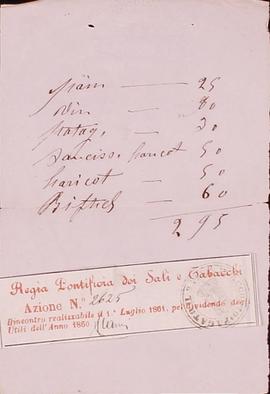 pain — 25
vin — 80
potag. — 20
Saucisse haricot 50
haricot — 50
Biftec — 60
295
Regia Pontificia dei Sali e Tabacchi
Azione N.º 2625
Rincontro realizzabile il 1.º Luglio 1861. pel dividendo degli
Utili dell'Anno 1860